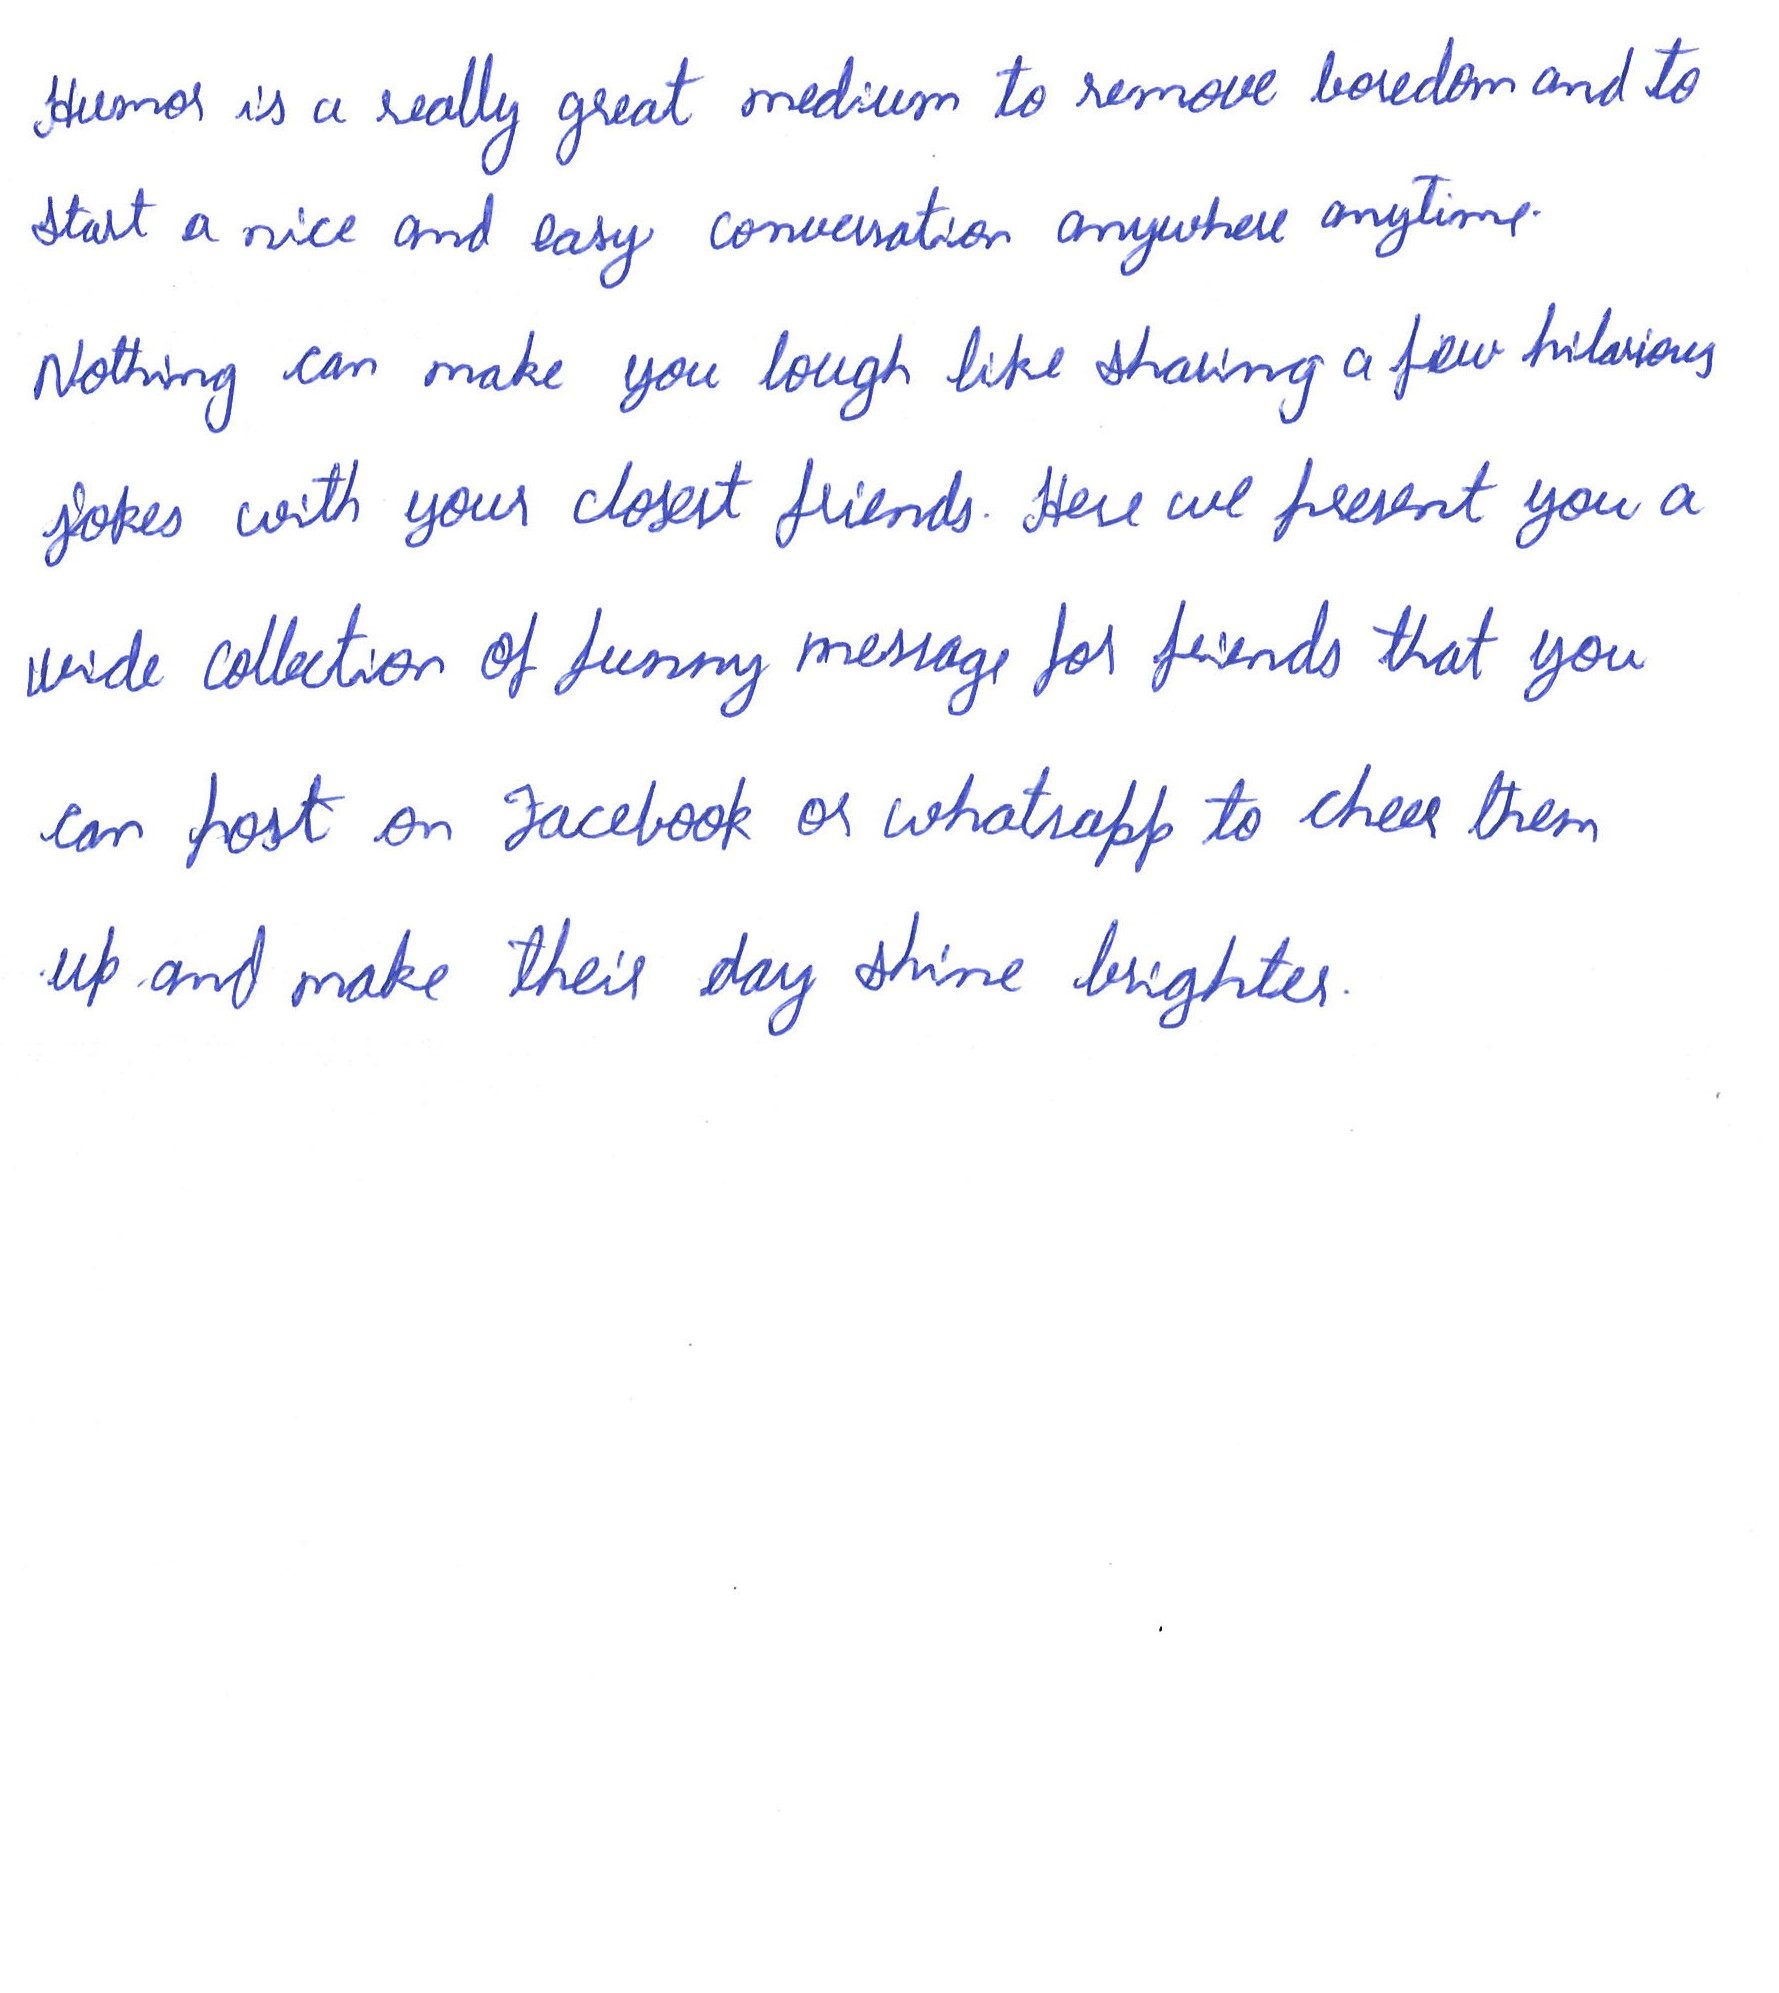 Humor is a really great medium to remove boredom and to
start a nice and easy conversation anywhere anytime.
Nothing can make you lough like sharing a few hilarious
jokes with your closest friends. Here we present you a
wide collection of funny message for friends that you
can post on Facebook or whatsapp to cheer them
up and make their day shine brighter.